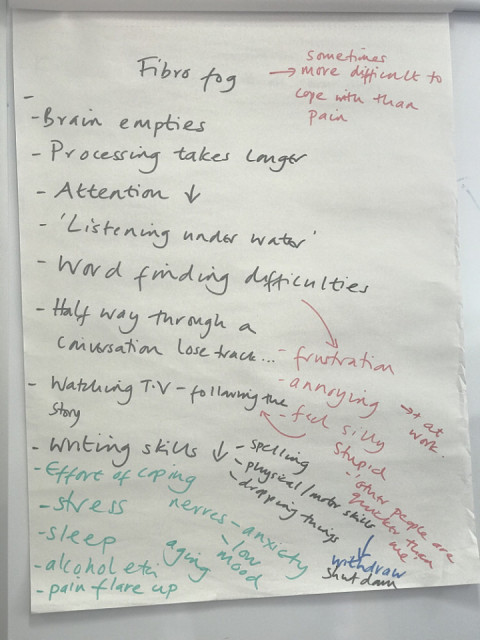 Fibro fog
→ sometimes
more difficult to
cope with than
pain
-
- Brain empties
- Processing takes longer
- Attention ↓
- 'Listening under water'
- Word finding difficulties
- Half way through a
conversation lose track...
- frustration
- annoying
→ + at
work.
- feel silly
stupid
- 'other people are
quicker than
me'
- Watching T.V - following the
story
- Writing skills ↓
- spelling
- physical/motor skills
- dropping things
withdraw
shut down
- Effort of coping
- stress
nerves - anxiety
- low
mood
- sleep
aging
- alcohol etc
- pain flare up